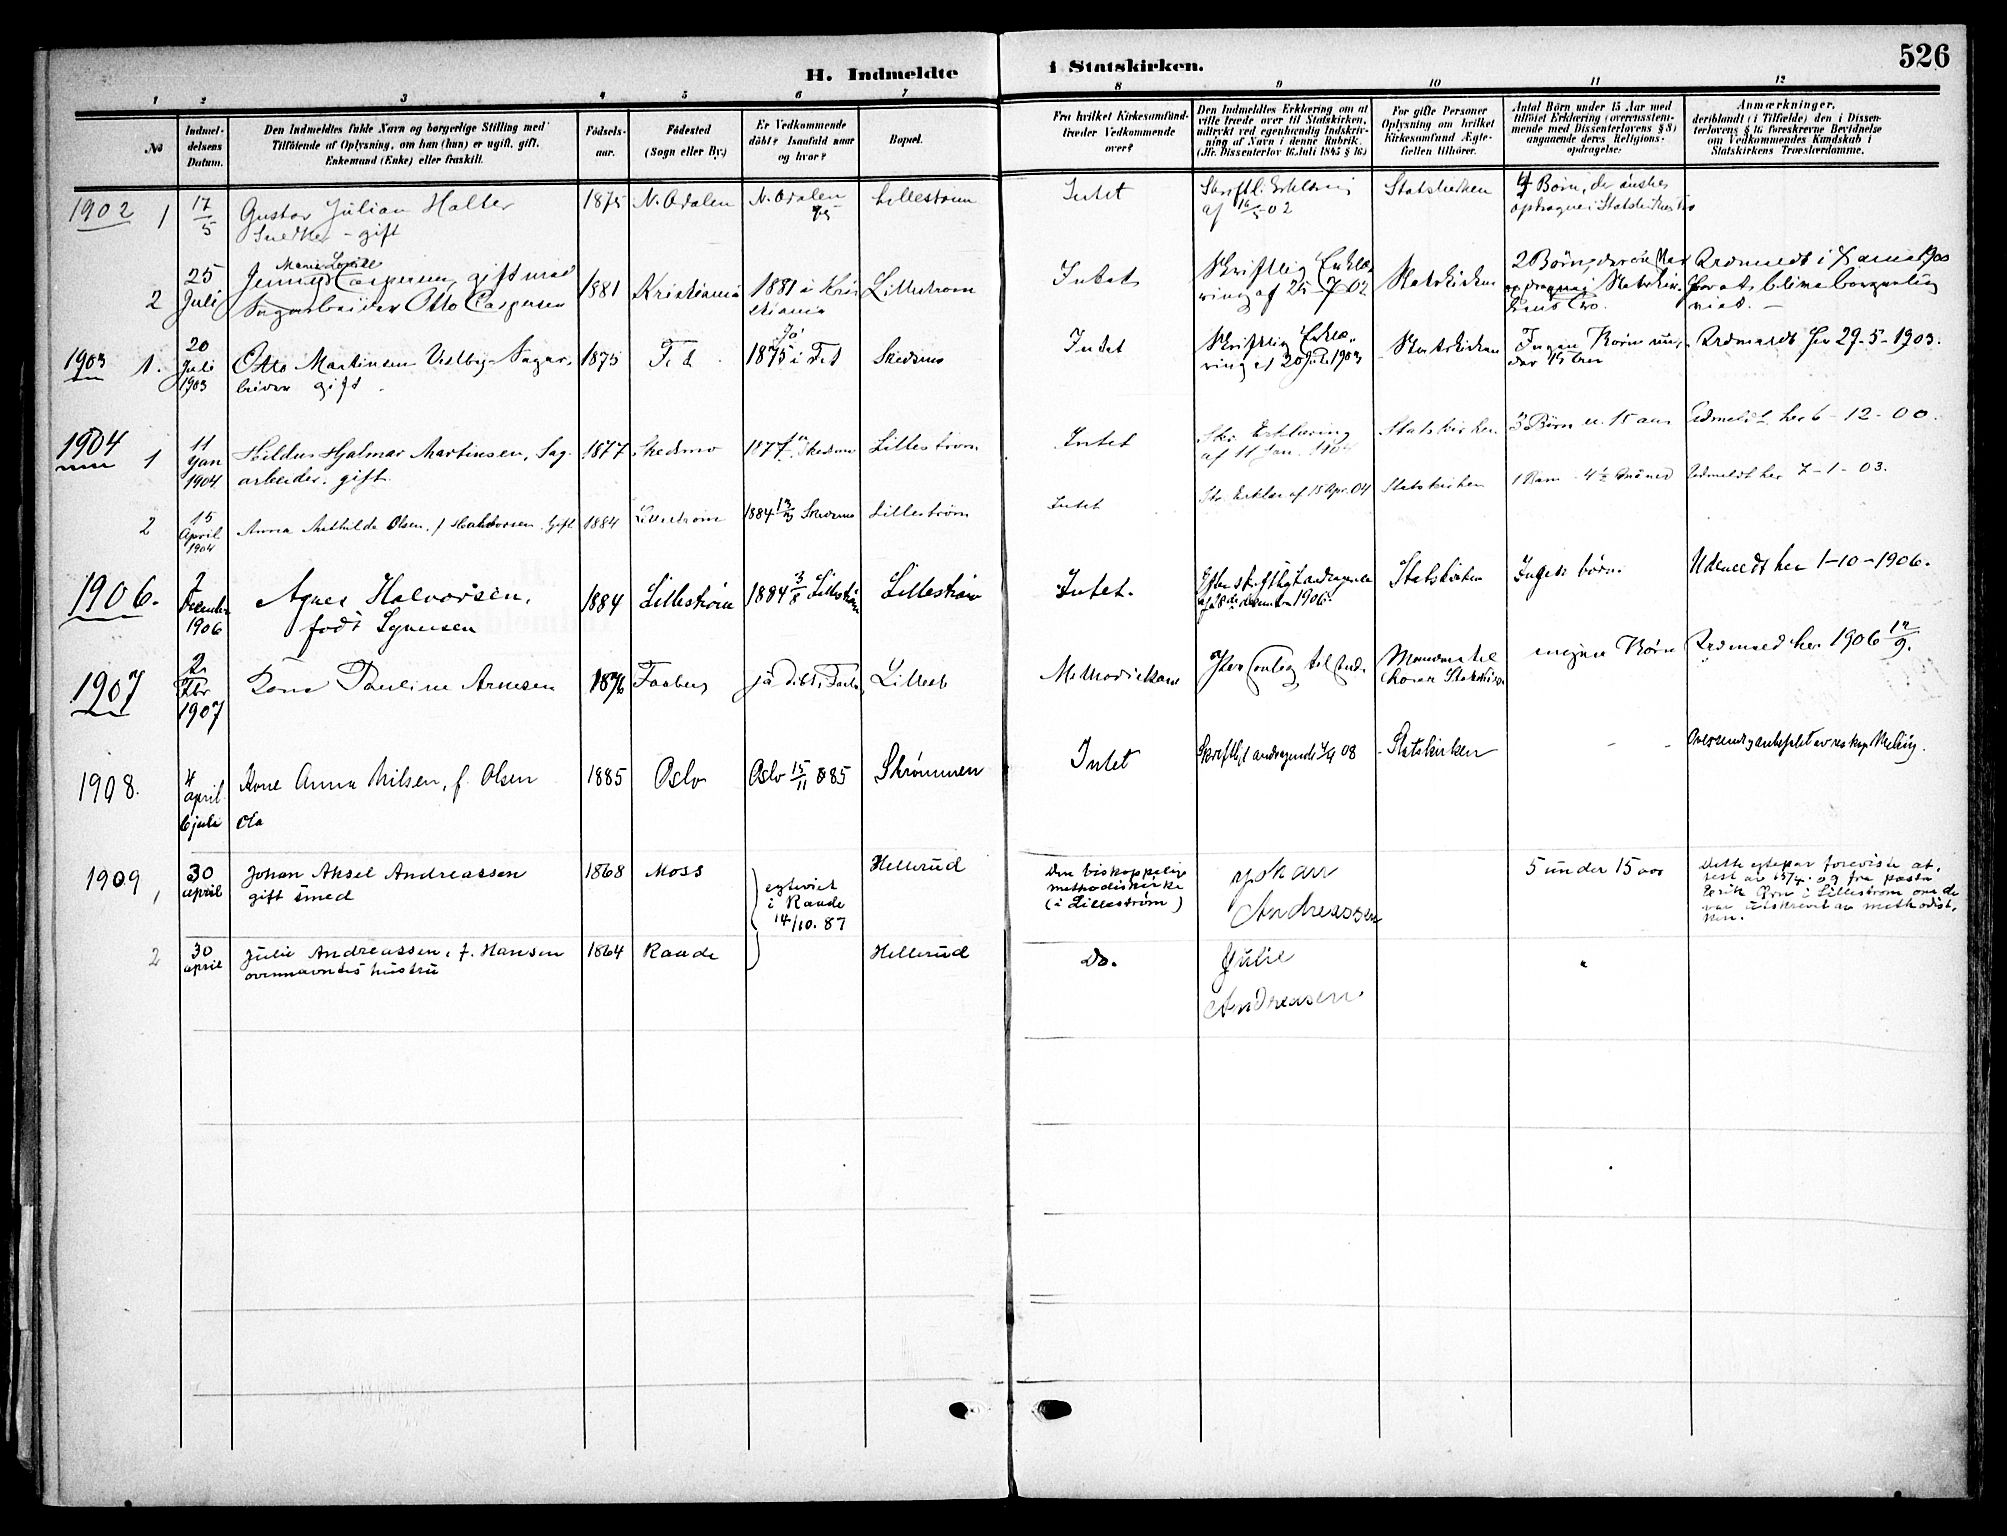 526
H. Indmeldte i Statskirken.
1 2 3 4 5 6 7 8 9 10 11 12
No
Indmel-
delsens
Datum.
Den Indmeldtes fulde Navn og borgerlige Stilling med
Tilföiende af Oplysning, om han (hun) er ugift, gift,
Enkemand (Enke) eller fraskilt.
Födsels-
aar.
Födested
(Sogn eller By.)
Er Vedkommende
döbt? Isaafald naar
og hvor?
Bopæl.
Fra hvilket Kirkesamfund
træder Vedkommende
over?
Den Indmeldtes Erklæring om at
ville træde over til Statskirken,
udtrykt ved egenhændig Indskriv-
ning af Navn i denne Rubrik.
(Jfr. Dissenterlov 16 Juli 1845 § 16)
For gifte Personer
Oplysning om hvilket
Kirkesamfund Ægte-
fællen tilhörer.
Antal Börn under 15 Aar med
tilföiet Erklæring (overensstem-
mende med Dissenterlovens § 8)
angaaende deres Religions-
opdragelse.
Anmærkninger,
deriblandt (i Tilfælde) den i Dissen-
terlovens § 16 foreskrevne Bevidnelse
om Vedkommendes Kundskab i
Statskirkens Troeslærdomme.
1902 1 17/5 Gustav Julian Halter 1875 N. Odalen N. Odalen 75 Lillestrøm Intet Skriftl. Erklæring Statskirken 4 Børn, de ønskes
Snedker - gift af 16/5 02 opdragne i Statskirkens tro
Marie Lovise
2 25 Juli Jenny Caspersen, gift med 1881 Kristiania 1881 i Kri- Lillestrøm Intet Skriftlig Erklæ- Statskirken 2 Børn,
Sagarbeider Otto Caspersen stiania ring af 25-7-02
1903 1. 20 Juli 1903 Otto Martinsen Vestby - Sagar- 1875 Fet 1875 i Fet Skedsmo Intet Skriftlig Erklæ- Statskirken Ingen Børn un- Udmeldt her 29-5-1903.
beider gift. ring af 20 Juli 1903 der 15 aar
1904 1 11 Jan 1904 Hildus Hjalmar Martinsen, Sag- 1877 Skedsmo 1877 Skedsmo Lillestrøm Intet Skr. Erklæring Statskirken 3 Børn u. 15 aar Udmeldt her 6-12-00.
arbeider, gift. af 11 Jan. 1904
2 15 April 1904 Anna Mathilde Olsen, f. Halvorsen. Gift 1884 Lillestrøm 1884 Skedsmo Lillestrøm Intet Skr. Erklær af 15 Apr. 04 Statskirken 1 Barn - 4½ Måned Udmeldt her 7-1-03.
1906. 2 December 1906 Agnes Halvorsen, 1884 Lillestrøm 1884 3/8 Lillestrøm Lillestrøm Intet. Efter skriftligt andragende Statskirken Ingen børn. Udmeldt her 1-10-1906.
født Synnesen af 28de december 1906.
1907 2 Fbr 1907 Kona Pauline Arnesen 1876 Faaberg Lillestr Methodistkirke ingen Børn Udmeldt her 1906 12/9.
1908. 4 april 6 juli Kone Anna Nilsen, f. Olsen 1885 Oslo Oslo 15/11 885 Strømmen Intet Skriftligt andragende 4/4 08 Statskirken - -
1909 1 30 april Johan Aksel Andreassen 1868 Moss Hellerud Den biskoppelige Johan 5 under 15 aar Dette egtepar foreviste at-
gift smed egteviet methodistkirke Andreassen test av 15/4. og fra pastor
i Raade (i Lillestrøm) i Lillestrøm om de
14/10. 87 var utskrevet av methodist-
kirken.
2 30 april Julie Andreassen, f. Hansen 1864 Raade Hellerud Do. Julie "
ovennævntes hustru Andreasen.